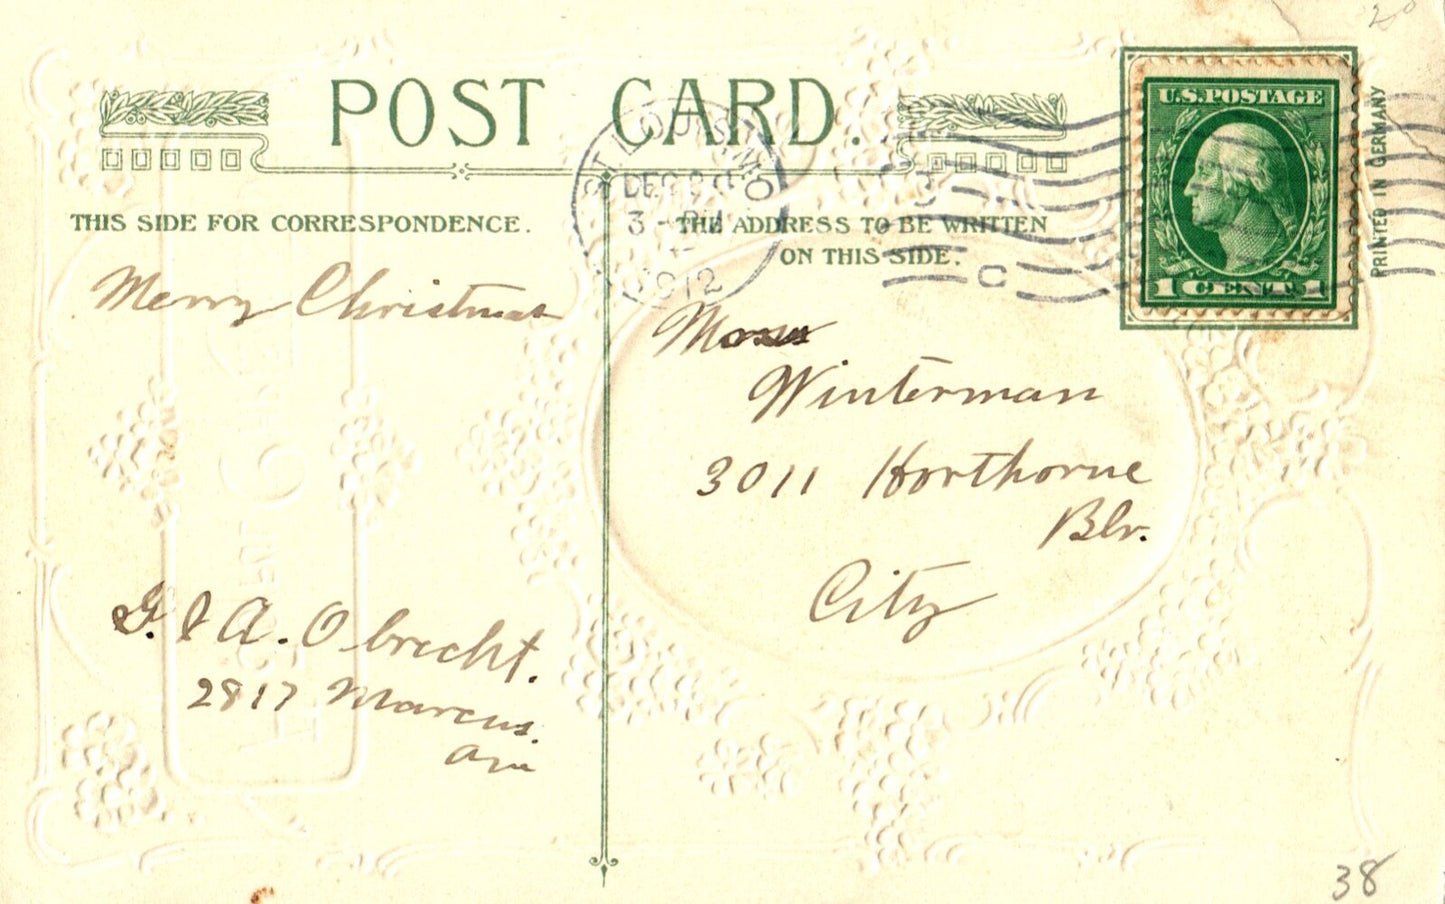 POST CARD.
THIS SIDE FOR CORRESPONDENCE.
THE ADDRESS TO BE WRITTEN
ON THIS SIDE.
ST. LOUIS, MO
DEC
3 - PM
1912
U.S. POSTAGE
1 CENT 1
PRINTED IN GERMANY
Merry Christmas
G. & A. Obrecht.
2817 Marcus.
Ave
Winterman
3011 Horthorne
Blv.
City
C
38